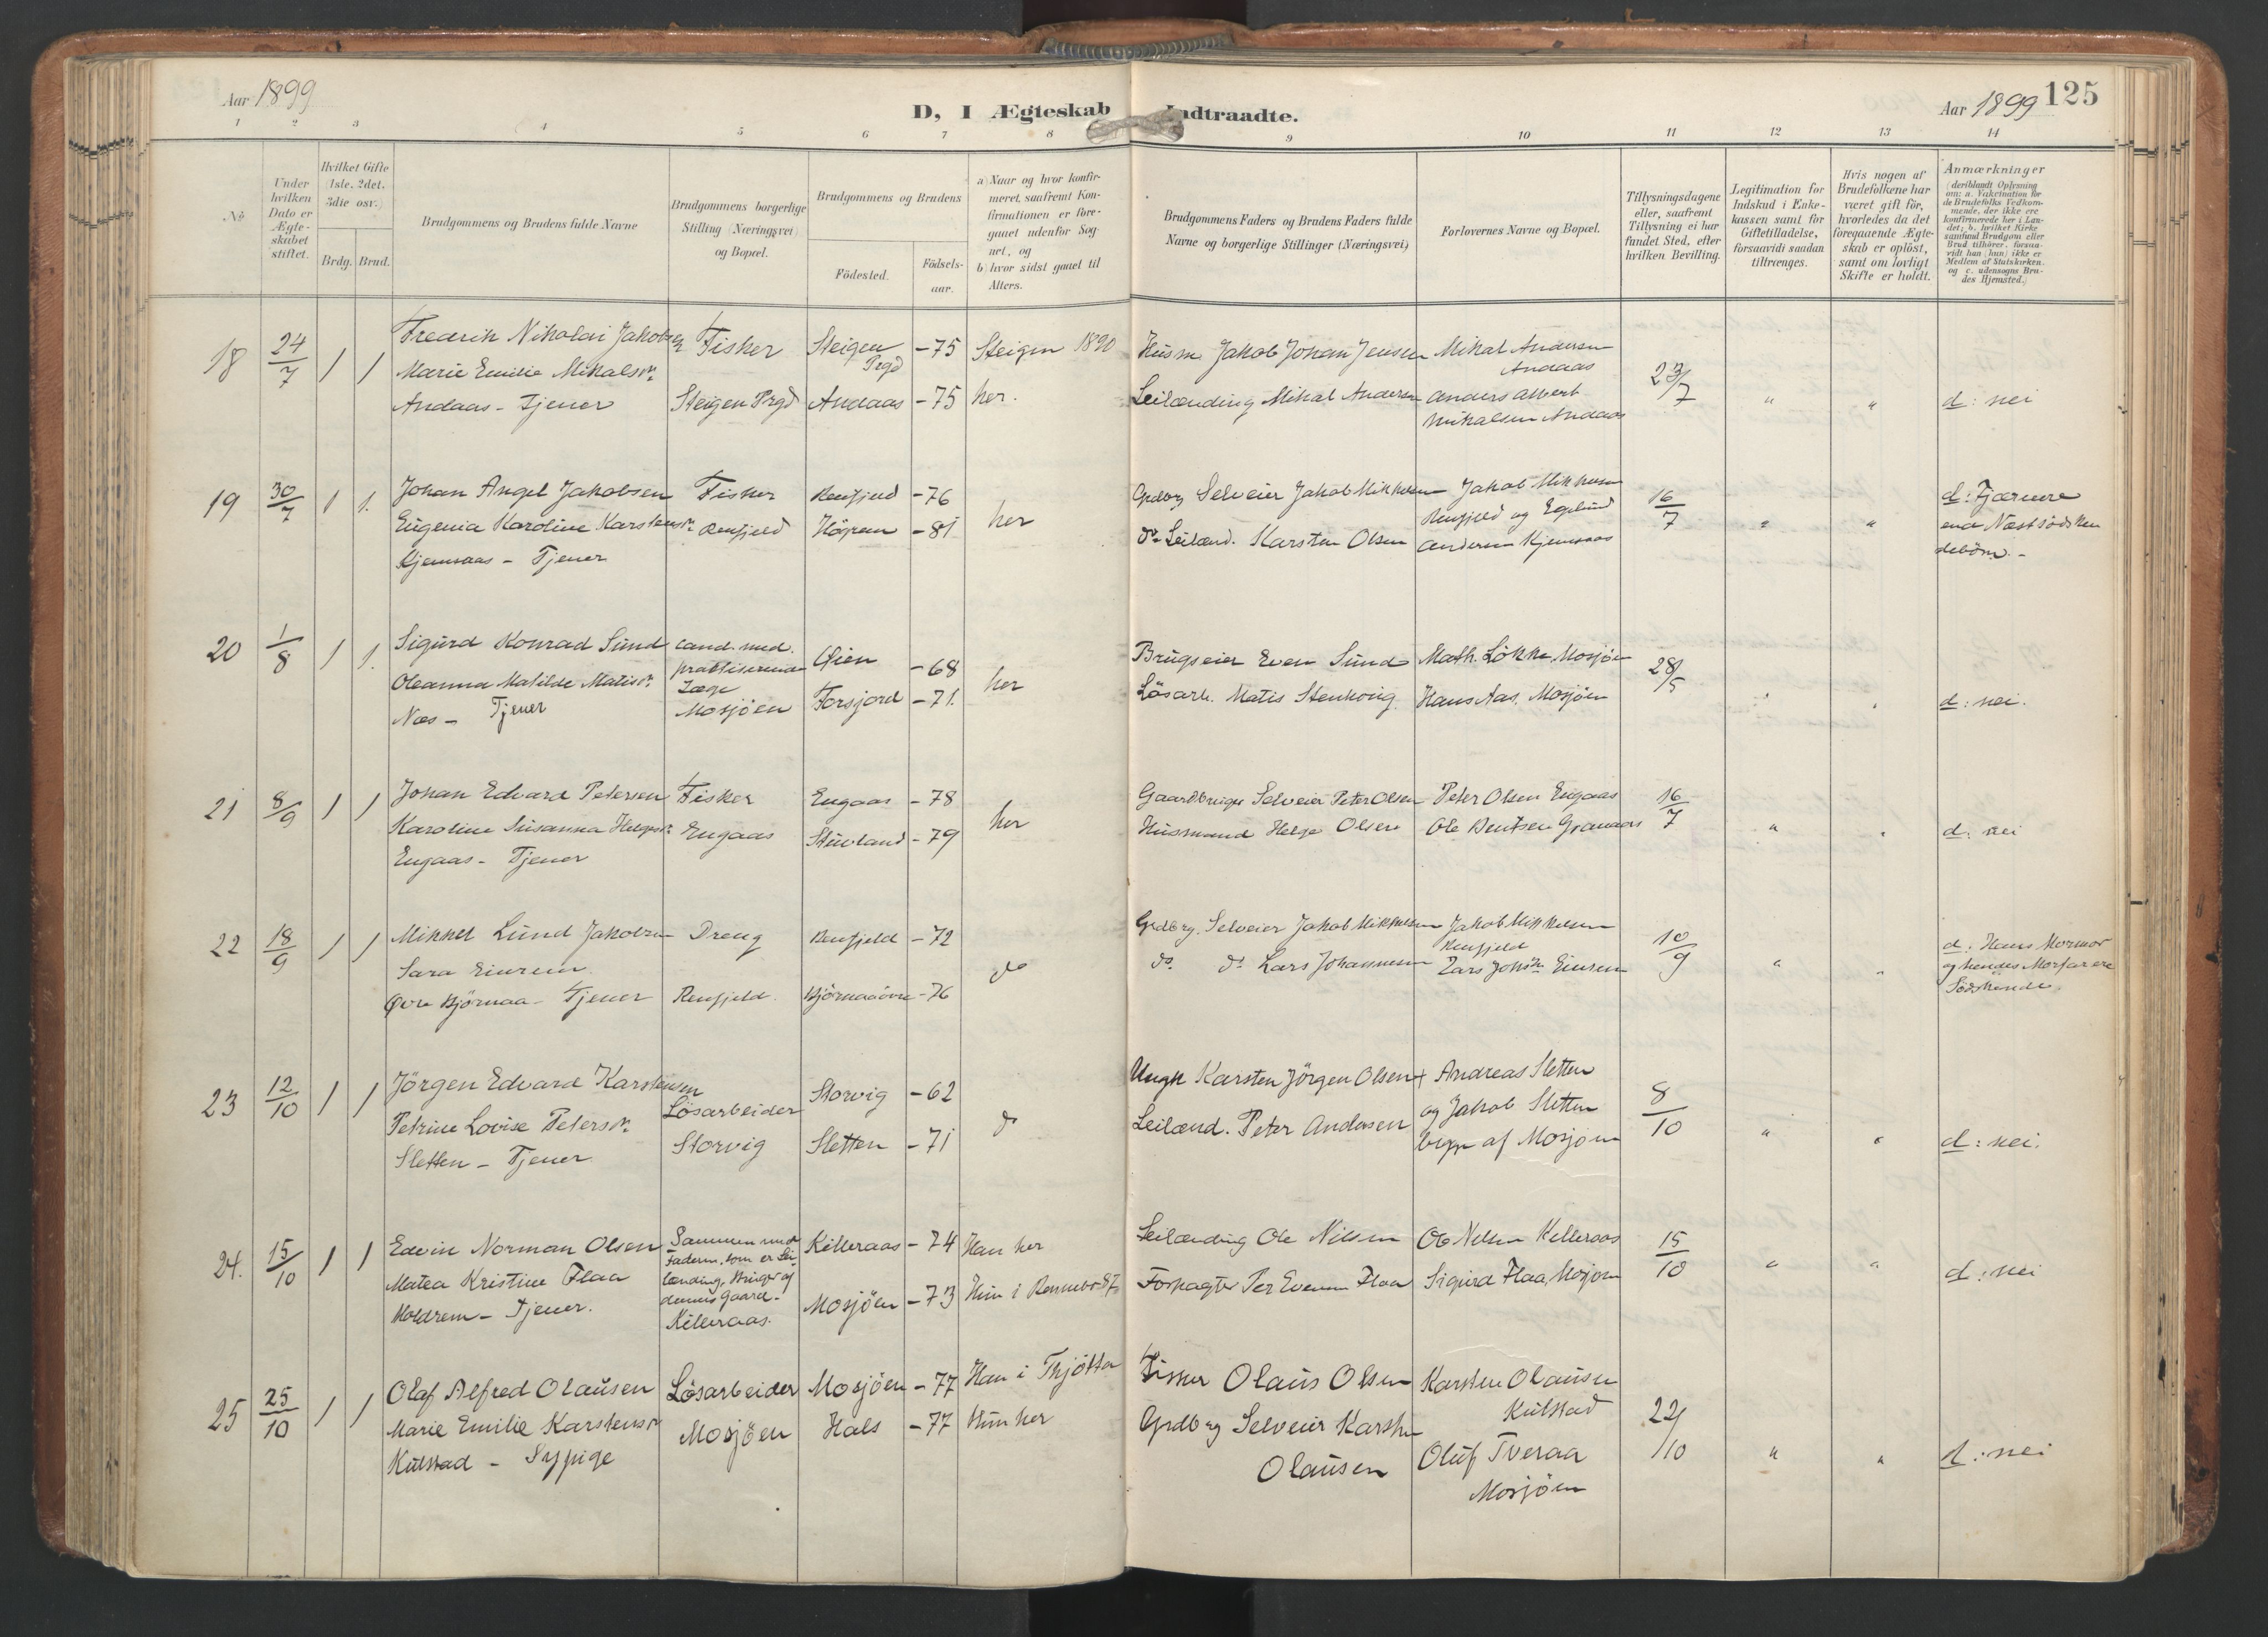 Aar 1899
D, I Ægteskab Indtraadte.
Aar 1899 125
1 2 3 4 5 6 7 8 9 10 11 12 13 14
№
Under hvilken Dato er Ægteskabet stiftet.
Hvilket Gifte (1ste, 2det, 3die osv.)
Brdg. Brud.
Brudgommens og Brudens fulde Navne
Brudgommens borgerlige Stilling (Næringsvei) og Bopæl.
Brudgommens og Brudens
Födested.
Födselsaar.
a) Naar og hvor konfirmeret, saafremt Konfirmationen er foregaaet udenfor Sognet, og
b) hvor sidst gaaet til Alters.
Brudgommens Faders og Brudens Faders fulde Navne og borgerlige Stillinger (Næringsvei)
Forlovernes Navne og Bopæl.
Tillysningsdagene eller, saafremt Tillysning ei har fundet Sted, efter hvilken Bevilling.
Legitimation for Indskud i Enkekassen samt for Giftetilladelse, forsaavidt saadan tiltrænges.
Hvis nogen af Brudefolkene har været gift för, hvorledes da det foregaaende Ægteskab er oplöst, samt om lovligt Skifte er holdt.
Anmærkninger (deriblandt Oplysning om: a. Vakcination for de Brudefolks Vedkommende, der ikke ere konfirmerede her i Landet; b. hvilket Kirkesamfund Brudgom eller Brud tilhörer, forsaavidt han (hun) ikke er Medlem af Statskirken, og c. udensogns Brudes Hjemsted.)
18 24/7 1 1
Fredrik Nikolai Jakobsen Fisker Steigen Prgd -75 Steigen 1890
Marie Emilie Mikalsdr
Andaas - Tjener Steigen Prgd Andaas -75 her.
Husm. Jakob Johan Jensen Mikal Andersen
Andaas
Leilænding Mikal Andersen Anders Albert
Mikalsen Andaas
23/7 " " d: nei
19 30/7 1 1.
Johan Angel Jakobsen Fisker Renfjeld -76
Eugenia Karoline Karstensdr Renfjeld Höpen -81 her
Kjemsaas - Tjener
Grdbrg Selveier Jakob Mikkelsen Jakob Mikkelsen
Renfjeld og
do Leilænd. Karsten Olsen Andersen Kjemsaas
16/7 " " d: Fjærnere
end Næstsödsken
debörn. -
20 1/8 1 1.
Sigurd Konrad Sund cand. med. Öien -68
praktiserende
Oleanna Matilde Matisdr Læge Forsjord -71. her
Næs - Tjener Mosjöen
Brugseier Even Sund Math. Lökke, Mosjöen
Lösarb. Matis Stenkvig Hans Aas, Mosjöen
28/5 " " d: nei.
21 8/9 1 1
Johan Edvard Petersen Fisker Engaas -78
Karoline Susanna Helgesdr Engaas Stuvland -79 her
Engaas - Tjener
Gaardbruger Selveier Peter Olsen Peter Olsen Engaas
Husmand Helge Olsen Ole Bentsen Granaas
16/7 " " d: nei
22 18/9 1 1
Mikkel Lund Jakobsen Dreng Renfjeld -72
Sara Einrem do
Övre Björnaa - Tjener Renfjeld. Björnaaövre -76
Grdbrg. Selveier Jakob Mikkelsen Jakob Mikkelsen
Renfjeld
do. do Lars Johannesen Lars Einrem
10/9 " " d: Hans Mormor
og hendes Morfar ere
Södskende.
23 12/10 1 1
Jörgen Edvard Karstensen Storvig -62
Lösarbeider do
Petrine Lovise Petersdr.
Sletten - Tjener Storvig Sletten -71
Ungk Karsten Jörgen Olsen + Andreas Sletten
og Jakob Sletten
Leilænd. Peter Andersen begge af Mosjöen
8/10 " " d: nei.
24. 15/10 1 1
Edvin Norman Olsen Sammen med Killeraas -74 Han her
Faderen, som er Lei
Matea Kristine Flaa lænding, Bruger af
dennes Gaard -
Holdrem - Tjener. Killeraas. Mosjöen -73 Hun i Rennebo 87
Leilænding Ole Nilsen Ole Nilsen Killeraas
Forpagter Per Evensen Flaa Sigurd Flaa, Mosjöen
15/10 " " d: nei
25 25/10 1 1
Olaf Alfred Olausen Lösarbeider Mosjöen -77 Han i Thjötta
Marie Emilie Karstensdr Mosjöen Hals -77 Hun her
Kulstad - Sypige
Fisker Olaus Olsen Karsten Olausen
Kulstad
Grdbrg Selveier Karsten
Olausen Oluf Tveraa
Mosjöen
22/10 " " d: nei